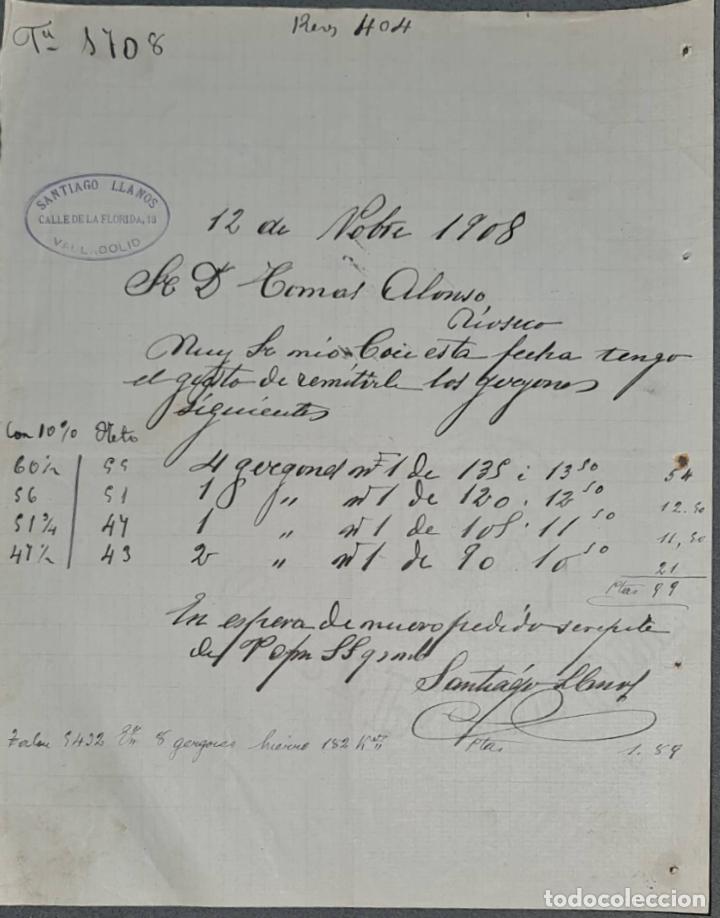 Reves 404
Tu 5708
SANTIAGO LLANOS
CALLE DE LA FLORIDA, 18
VALLADOLID
12 de Nobre 1908
Sr Dn Tomas Alonso
Rioseco
Muy Sr mio Con esta fecha tengo
el gusto de remitirle los gergones
siguientes
Con 10% Neto
60½ 55 4 gergones nº 1 de 135 á 13 50 54
56 51 1 " nº 1 de 120 . 12 50 12.50
51¾ 47 1 " nº 1 de 105 . 11 50 11,50
47½ 43 2 " nº 1 de 90 . 10 50 21
Ptas 99
En espera de nuevo pedido se repite
de V. S S q
Santiago Llanos
Talon 9432 8 gergones hierro 182 Kos Ptas 1.59
todocoleccion